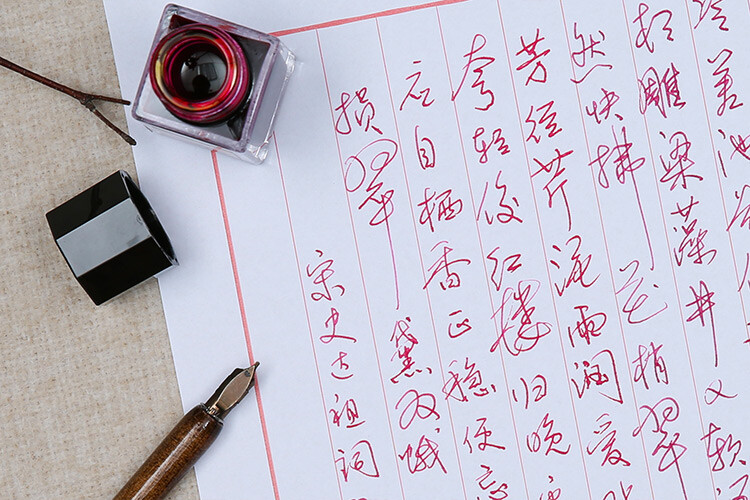 冷差池
相雕梁藻井又软
然快拂花梢翠
芳径芹泥雨润爱
夸轻俊红楼归晚
应自栖香正稳便忘
损翠黛双蛾
宋史达祖词